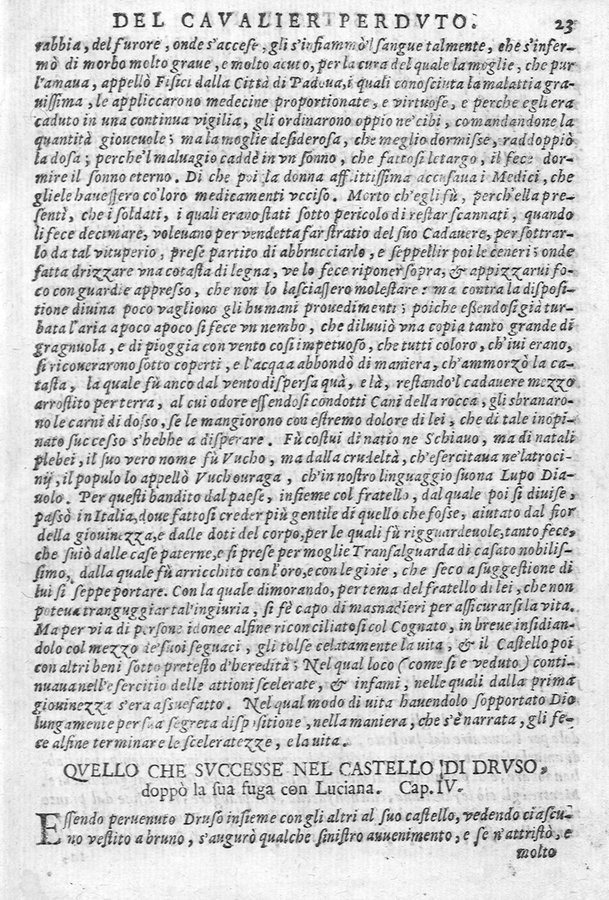 DEL CAVALIER PERDVTO. 23
rabbia, del furore, onde s'accese, gli s'infiammò'l sangue talmente, che s'infer-
mò di morbo molto graue, e molto acuto, per la cura del quale la moglie, che pur
l'amaua, appellò Fisici dalla Città di Padoua, i quali conosciuta la malattia gra-
uissima, le appliccarono medecine proportionate, e virtuose, e perche egli era
caduto in una continua vigilia, gli ordinarono oppio ne'cibi, comandandone la
quantità gioueuole; ma la moglie desiderosa, che meglio dormisse, raddoppiò
la dosa; perche'l maluagio caddè in vn sonno, che fattosi letargo, il fece dor-
mire il sonno eterno. Di che poi la donna afflittissima accusaua i Medici, che
gliele hauessero co'loro medicamenti vcciso. Morto ch'egli fù, perch'ella pre-
sentì, che i soldati, i quali erano stati sotto pericolo di restar scannati, quando
li fece decimare, voleuano per vendetta far stratio del suo Cadauere, per sottrar-
lo da tal vituperio, prese partito di abbrucciarlo, e seppellir poi le ceneri; onde
fatta drizzare vna catasta di legna, ve lo fece riponer sopra, & appizzarui fo-
co con guardie appresso, che non lo lasciassero molestare: ma contra la disposi-
tione diuina poco vagliono gli humani prouedimenti; poiche eßendosi già tur-
bata l'aria apoco apoco si fece vn nembo, che diluuiò vna copia tanto grande di
gragnuola, e di pioggia con vento cosi impetuoso, che tutti coloro, ch'iui erano,
si ricouerarono sotto coperti, e l'acqua abbondò di maniera, ch'ammorzò la ca-
tasta, la quale fù anco dal vento dispersa quà, e là, restando'l cadauere mezzo
arrostito per terra, al cui odore essendosi condotti Cani della rocca, gli sbranaro-
no le carni di dosso, se le mangiorono con estremo dolore di lei, che di tale inopi-
nato successo s'hebbe a disperare. Fù costui di natione Schiauo, ma di natali
plebei, il suo vero nome fù Vucho, ma dalla crudeltà, ch'esercitaua ne'latroci-
nij, il populo lo appellò Vuchouraga, ch'in nostro linguaggio suona Lupo Dia-
uolo. Per questi bandito dal paese, insieme col fratello, dal quale poi si diuise,
passò in Italia, doue fattosi creder più gentile di quello che fosse, aiutato dal fior
della giouinezza, e dalle doti del corpo, per le quali fù rigguardeuole, tanto fece,
che suiò dalle case paterne, e si prese per moglie Transalguarda di casato nobilis-
simo, dalla quale fù arricchito con l'oro, e con le gioie, che seco a suggestione di
lui si seppe portare. Con la quale dimorando, per tema del fratello di lei, che non
poteua tranguggiar tal'ingiuria, si fè capo di masnadieri per assicurarsi la vita.
Ma per via di persone idonee alfine riconciliatosi col Cognato, in breue insidian-
dolo col mezzo de'suoi seguaci, gli tolse celatamente la vita, & il Castello poi
con altri beni sotto pretesto d'heredità; Nel qual loco (come si e veduto) conti-
nuaua nell'esercitio delle attioni scelerate, & infami, nelle quali dalla prima
giouinezza s'era assuefatto. Nel qual modo di vita hauendolo sopportato Dio
lungamente per sua segreta dispositione, nella maniera, che s'è narrata, gli fe-
ce alfine terminare le sceleratezze, e la vita.
QVELLO CHE SVCCESSE NEL CASTELLO DI DRVSO,
doppò la sua fuga con Luciana. Cap. IV.
Essendo peruenuto Druso insieme con gli altri al suo castello, vedendo ciascu-
no vestito a bruno, s'augurò qualche sinistro auuenimento, e se n'attristò, e
molto